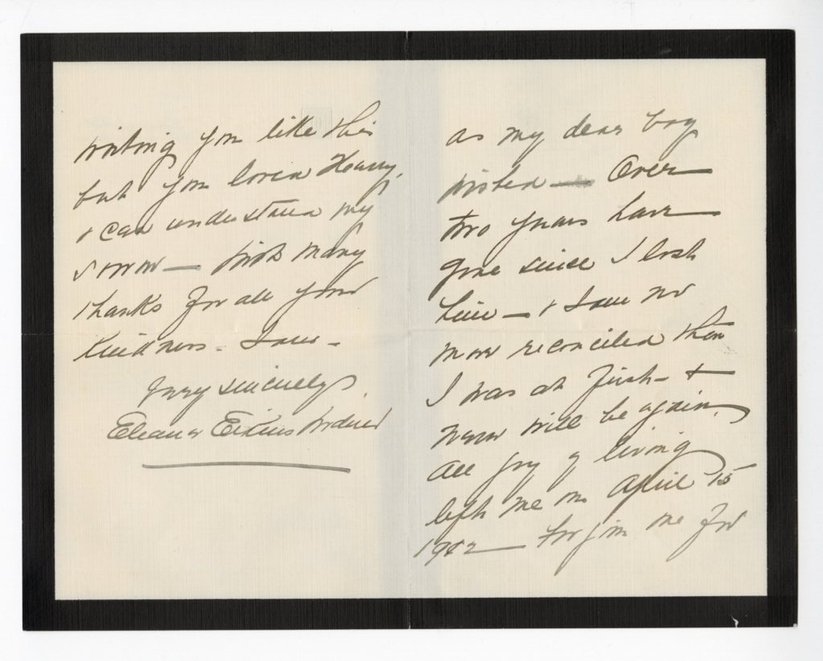 as my dear boy
wished — Over
two years have
gone since I lost
him — & I am no
more reconciled than
I was at first — &
never will be again.
All joy of living
left me on April 15
1912 — Forgive me for
writing you like this
but you loved Harry,
& can understand my
sorrow — With many
thanks for all your
kindness. I am —
Very sincerely,
Eleanor Elkins Widener